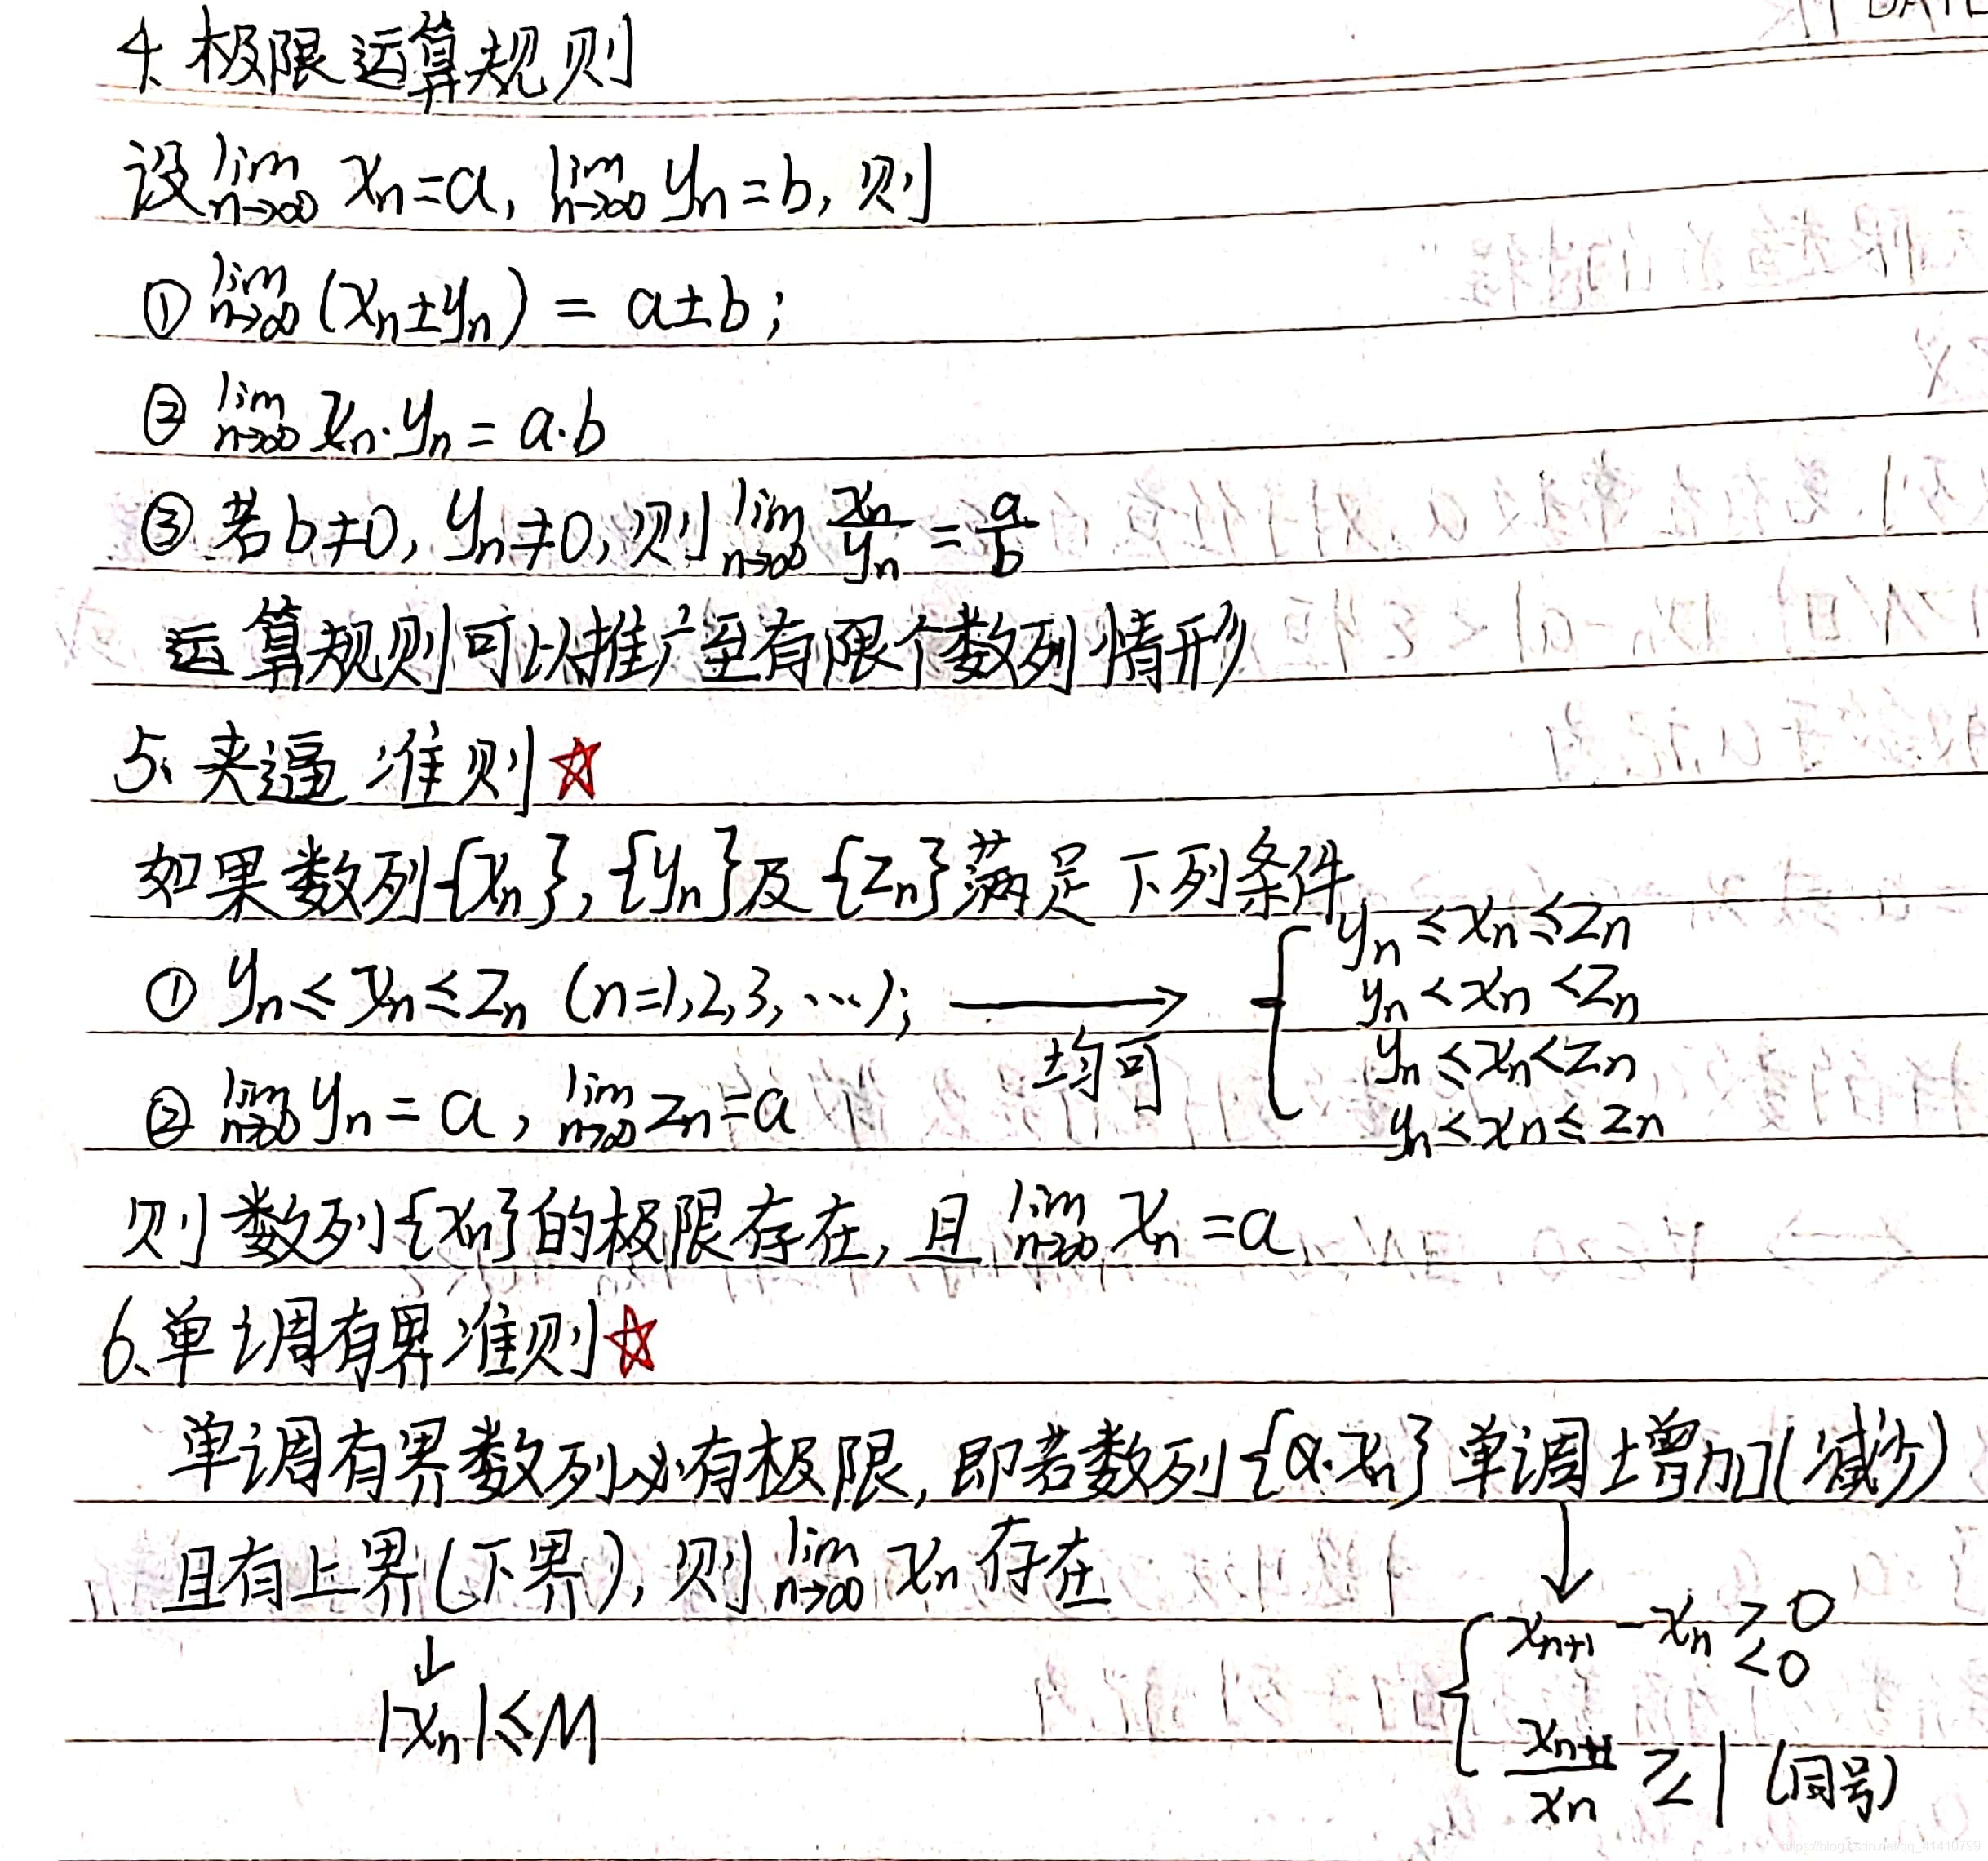 DATE
4. 极限运算规则
设 lim n→∞ xn=a, lim n→∞ yn=b, 则
① lim n→∞ (xn±yn) = a±b;
② lim n→∞ xn·yn = a·b
③ 若b≠0, yn≠0, 则 lim n→∞ xn/yn = a/b
运算规则可以推广至有限个数列情形
5、夹逼准则☆
如果数列{xn},{yn}及{zn}满足下列条件
① yn≤xn≤zn (n=1,2,3,…);
均可
yn≤xn≤zn
yn<xn<zn
yn≤xn<zn
yn<xn≤zn
② lim n→∞ yn = a, lim n→∞ zn=a
则数列{xn}的极限存在, 且 lim n→∞ xn=a
6、单调有界准则☆
单调有界数列必有极限, 即若数列{xn}单调增加(减少)
且有上界(下界), 则 lim n→∞ xn 存在
|xn|≤M
xn+1 - xn >0
<0
xn+1/xn ≥ 1 (同号)